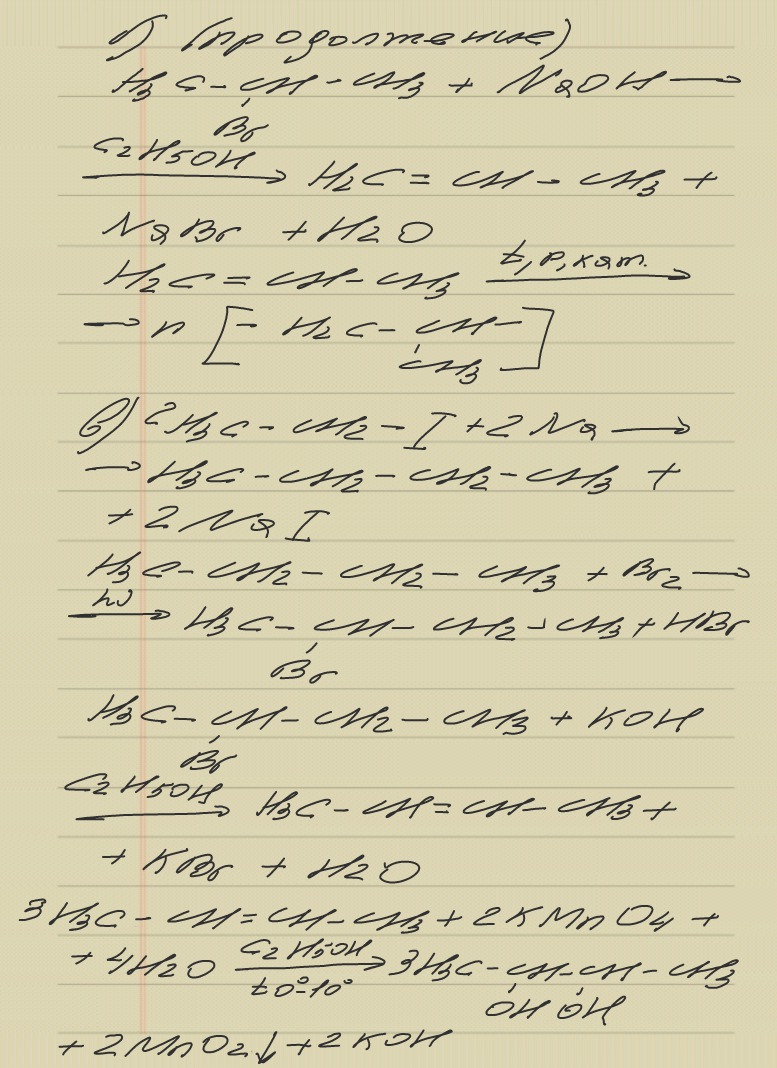 б) (продолжение)
H3C - CH - CH3 + NaOH →
Br
C2H5OH → H2C = CH - CH3 +
NaBr + H2O
H2C = CH - CH3 t, p, кат. →
→ n [ - H2C - CH - ]
CH3
в) 2H3C - CH2 - I + 2Na →
→ H3C - CH2 - CH2 - CH3 +
+ 2NaI
H3C - CH2 - CH2 - CH3 + Br2 →
hν → H3C - CH - CH2 - CH3 + HBr
Br
H3C - CH - CH2 - CH3 + KOH
Br
C2H5OH → H3C - CH = CH - CH3 +
+ KBr + H2O
3H3C - CH = CH - CH3 + 2KMnO4 +
+ 4H2O C2H5OH → t 0°-10° 3H3C - CH - CH - CH3
OH OH
+ 2MnO2↓ + 2KOH